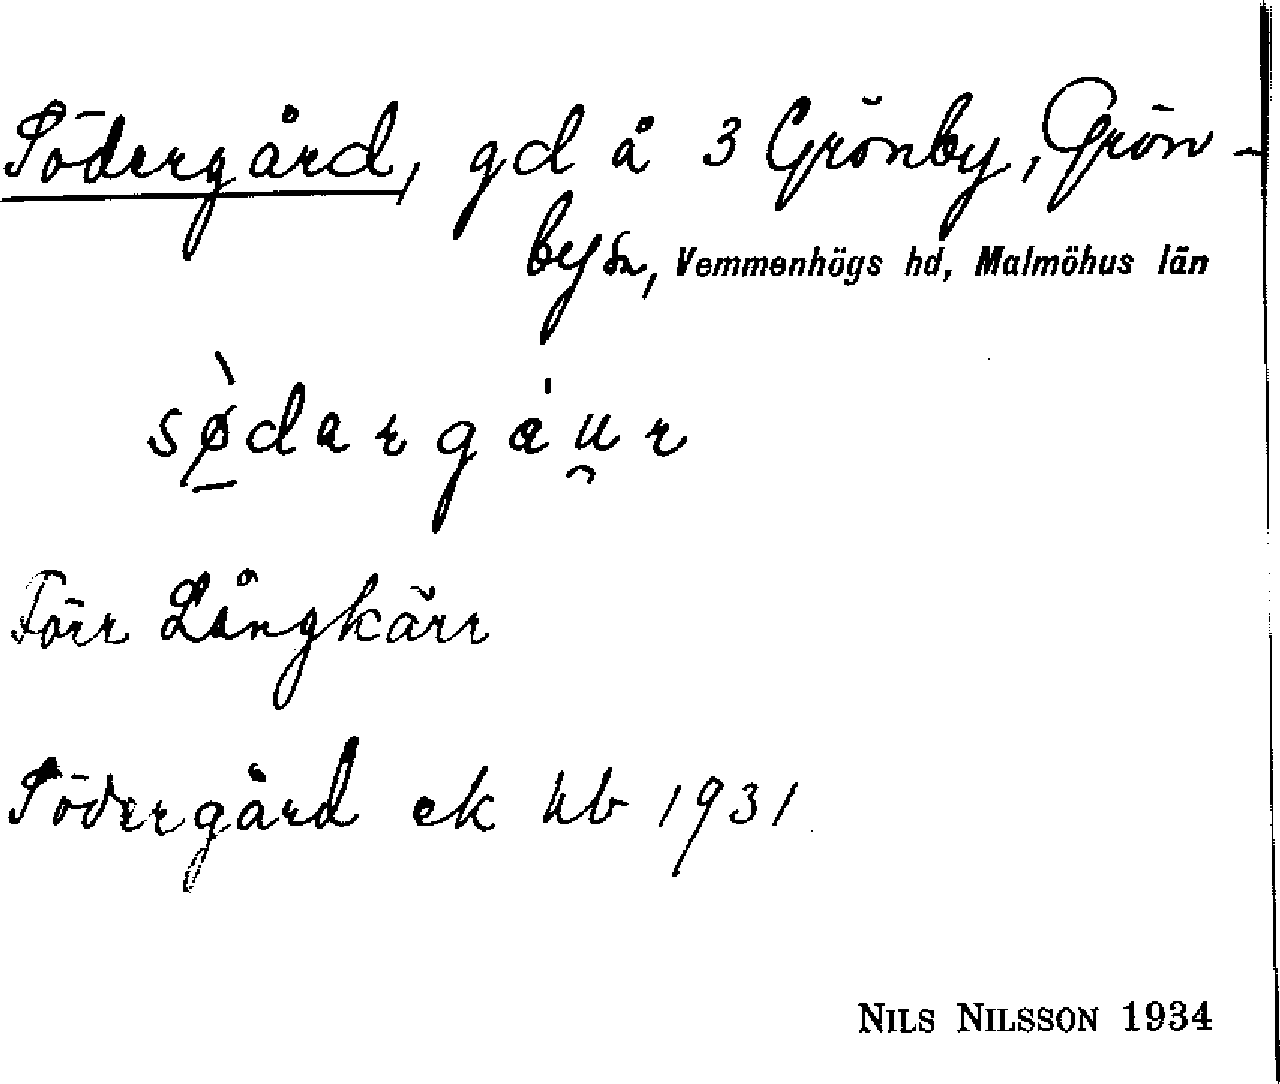 Södergård, gd å 3 Grönby, Grön-
by sn, Vemmenhögs hd, Malmöhus län
sø̱̀dargáu̯r
Förr Långkärr
Södergård ek kb 1931
NILS NILSSON 1934